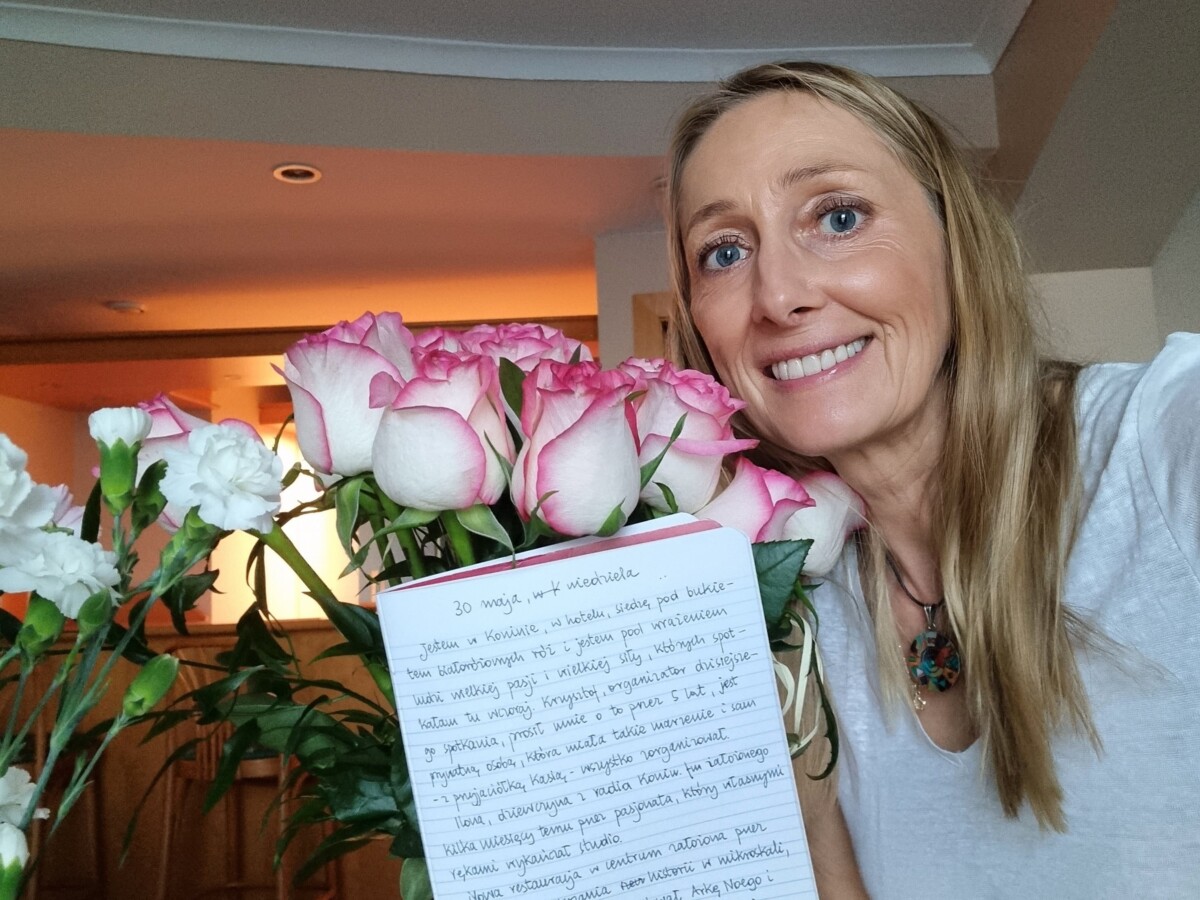 30 maja, w K niedziela
Jestem w Koninie, w hotelu, siedzę pod bukie-
tem białoróżowych róż i jestem pod wrażeniem
ludzi wielkiej pasji i wielkiej siły, których spot-
kałam tu wczoraj. Krzysztof, organizator dzisiejsze-
go spotkania, prosił mnie o to przez 5 lat, jest
prywatną osobą, która miała takie marzenie i sam
- z przyjaciółką Kasią - wszystko zorganizował.
Ilona, dziewczyna z radia Konin. fm założonego
kilka miesięcy temu przez pasjonata, który własnymi
rękami wykańczał studio.
restauracja w centrum założona przez
historii w mikroskali,
Arkę Noego i